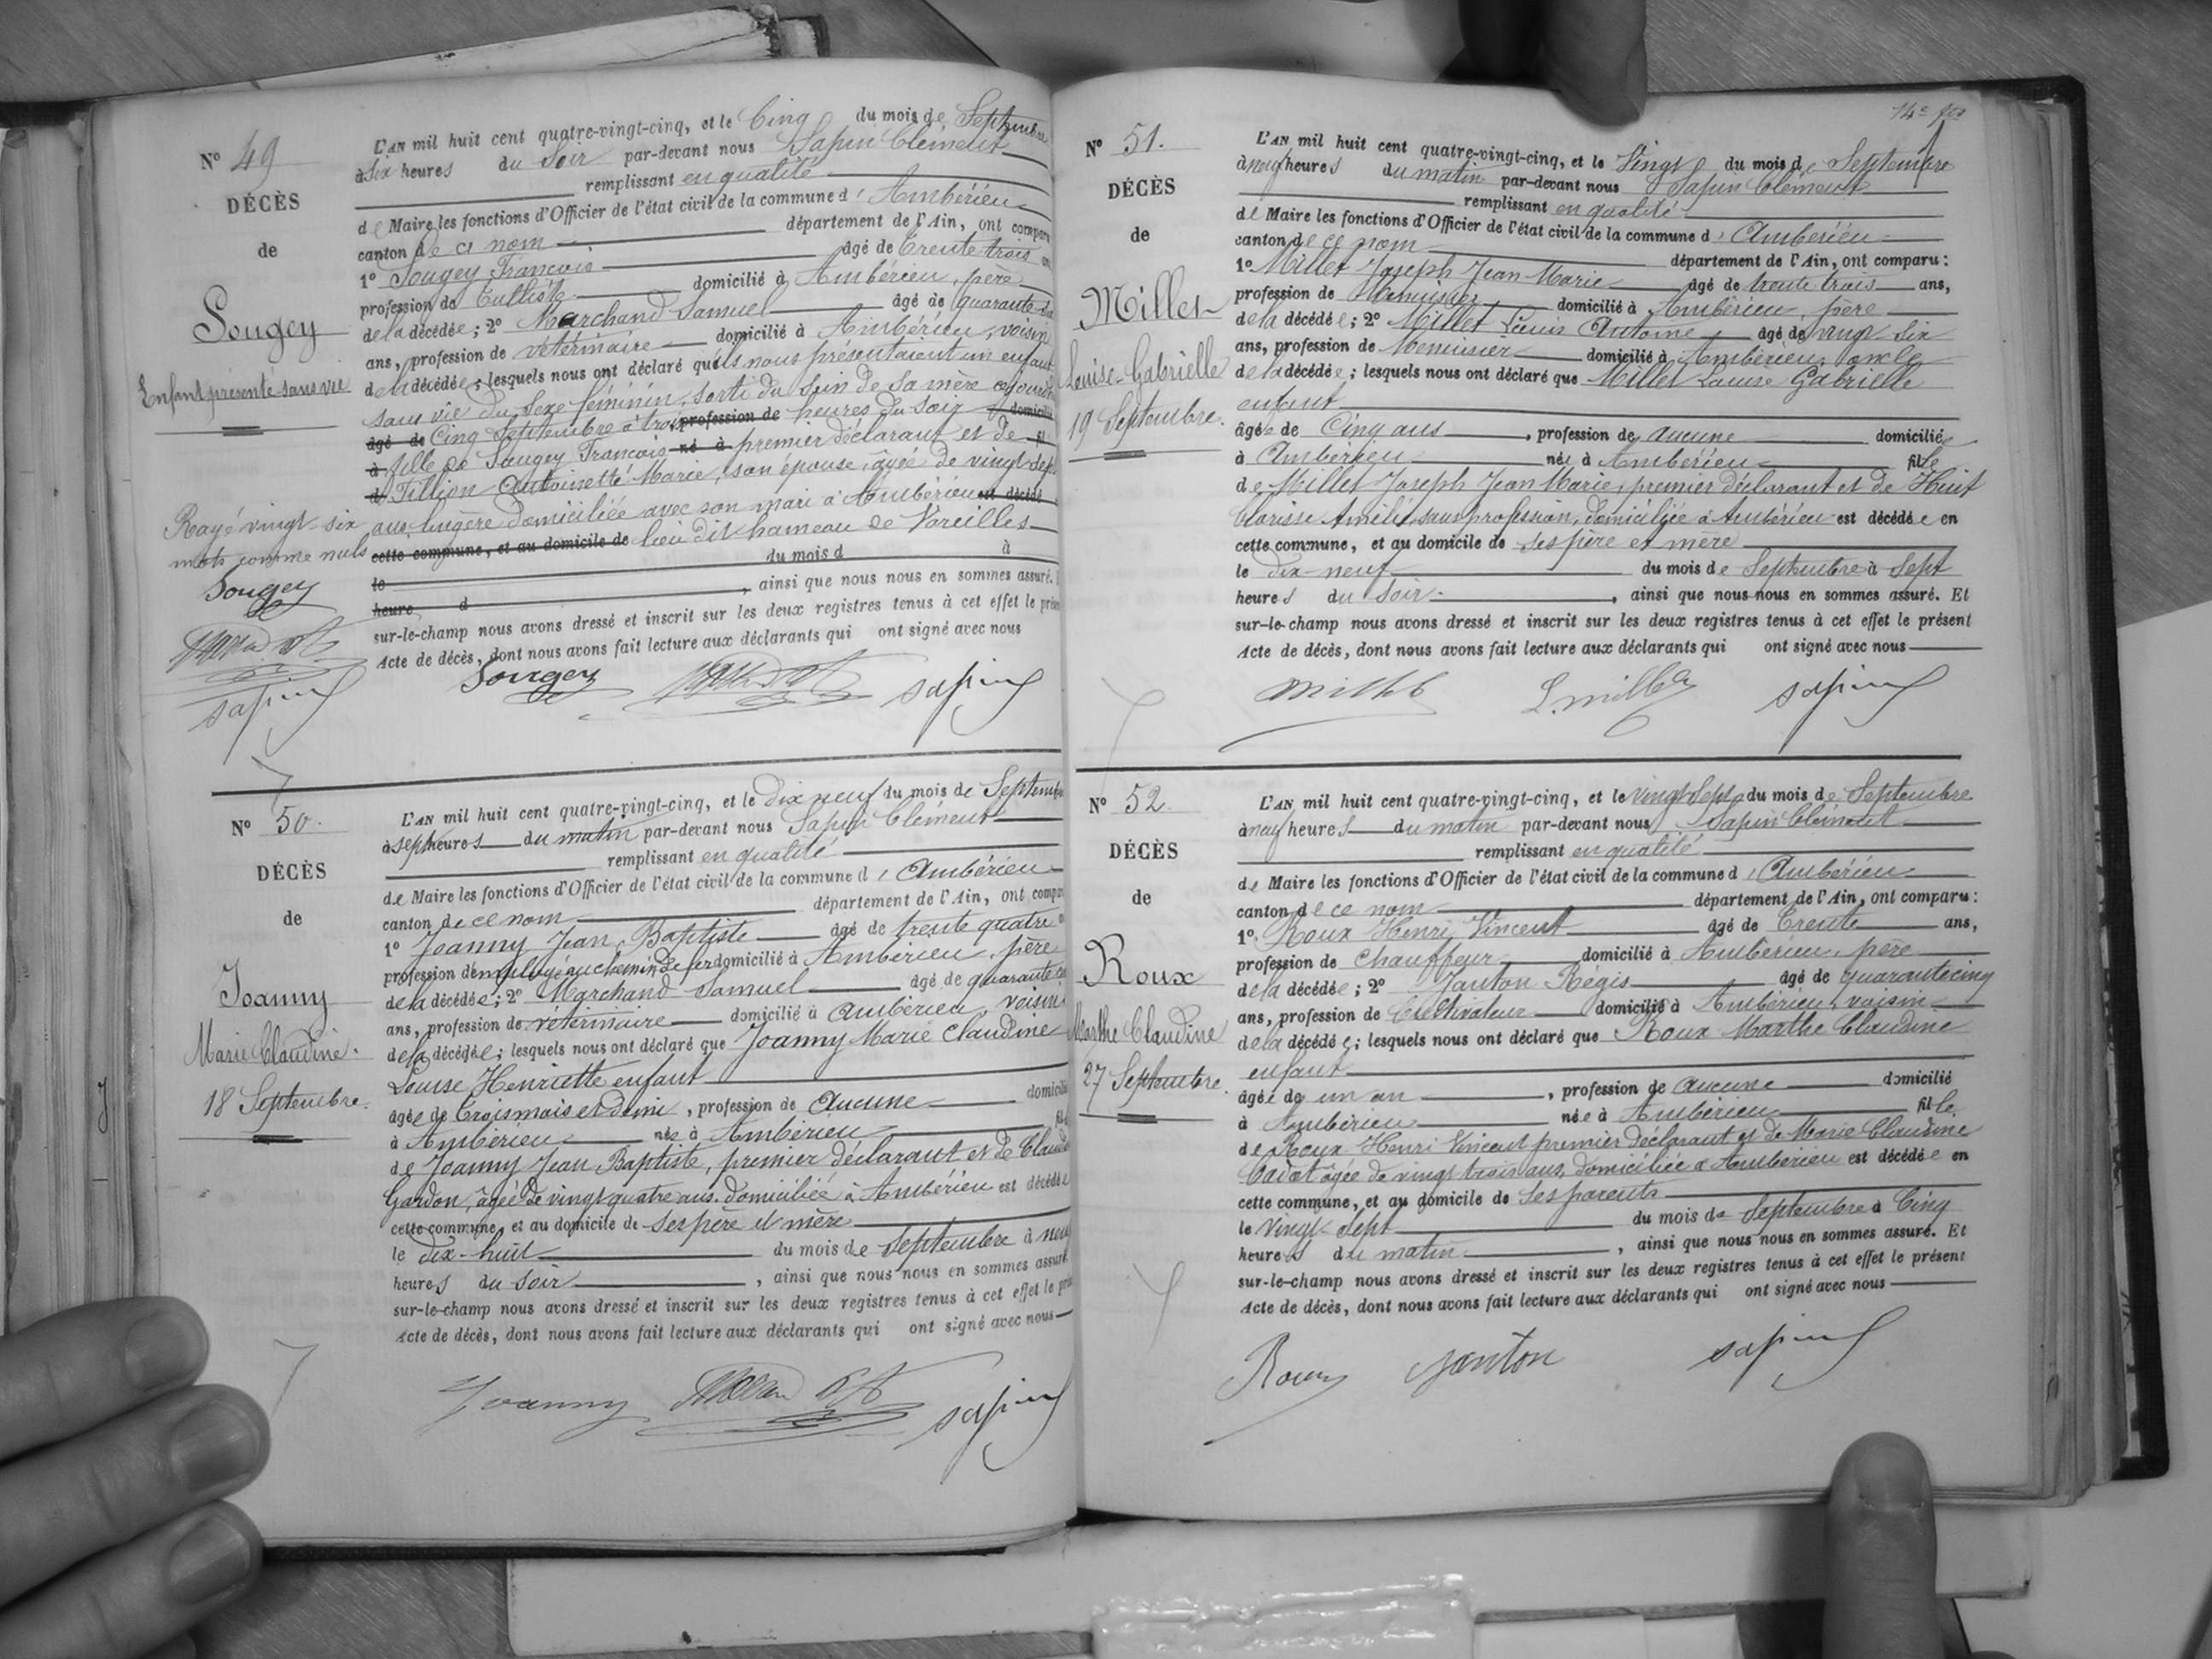 N° 49
DÉCÈS
de
Sougey
Enfant présenté sans vie
Rayé vingt-six
mots comme nuls
Sougey
sapin
L'AN mil huit cent quatre-vingt-cinq, et le Cinq du mois de Septembre
à Six heures du Soir par-devant nous Sapin Clément
remplissant en qualité
de Maire les fonctions d'Officier de l'état civil de la commune d' Ambérieu
canton de ce nom département de l'Ain, ont comparu
1° Sougey François âgé de trente trois
profession de domicilié à Ambérieu, père
de la décédée; 2° Marchand Samuel âgé de quarante
ans, profession de vétérinaire domicilié à Ambérieu, voisin
de la décédée; lesquels nous ont déclaré qu'ils nous présentaient un enfant
sans vie du Sexe féminin, sorti du Sein de Sa mère
âgé de Cinq Septembre à trois profession de heures du soir domicilié
à fille de Sougey François né à premier déclarant et de
d Tillion Antoinette Marie, son épouse, âgée de vingt-sept
ans, lingère domiciliée avec son mari à Ambérieu est décédé
cette commune, et au domicile de lieu dit hameau de Vareilles
le du mois d à
heure d , ainsi que nous nous en sommes assuré.
sur-le-champ nous avons dressé et inscrit sur les deux registres tenus à cet effet le
Acte de décès, dont nous avons fait lecture aux déclarants qui ont signé avec nous
Sougey sapin
N° 50.
DÉCÈS
de
Joanny
Marie Claudine.
18 Septembre.
L'AN mil huit cent quatre-vingt-cinq, et le Dix neuf du mois de Septembre
à sept heures du matin par-devant nous Sapin Clément
remplissant en qualité
de Maire les fonctions d'Officier de l'état civil de la commune d' Ambérieu
canton de ce nom département de l'Ain, ont
1° Joanny Jean Baptiste âgé de trente quatre
profession d'employé au chemin de fer domicilié à Ambérieu, père
de la décédée; 2° Marchand Samuel âgé de quarante
ans, profession de vétérinaire domicilié à Ambérieu, voisin
de la décédée; lesquels nous ont déclaré que Joanny Marie Claudine
Louise Henriette enfant
âgée de trois mois et demi, profession de Aucune domicilié
à Ambérieu née à Ambérieu
de Joanny Jean Baptiste, premier déclarant et de
Gardon, âgée de vingt quatre ans domiciliée à Ambérieu est décédée
cette commune, et au domicile de Ses père et mère
le Dix-huit du mois de Septembre à
heures du Soir , ainsi que nous nous en sommes assuré.
sur-le-champ nous avons dressé et inscrit sur les deux registres tenus à cet effet le
Acte de décès, dont nous avons fait lecture aux déclarants qui ont signé avec nous
Joanny sapin
N° 51.
DÉCÈS
de
Millet
Louise-Gabrielle
19 Septembre.
L'AN mil huit cent quatre-vingt-cinq, et le Vingt du mois de Septembre
à neuf heures du matin par-devant nous Sapin Clément
remplissant en qualité
de Maire les fonctions d'Officier de l'état civil de la commune d' Ambérieu
canton de ce nom département de l'Ain, ont comparu:
1° Millet Joseph Jean Marie âgé de trente trois ans,
profession de Menuisier domicilié à Ambérieu, père
de la décédée; 2° Millet Louis Antoine âgé de vingt-six
ans, profession de Menuisier domicilié à Ambérieu, oncle
de la décédée; lesquels nous ont déclaré que Millet Louise Gabrielle
enfant
âgée de Cinq ans , profession de aucune domiciliée
à Ambérieu née à Ambérieu fille
de Millet Joseph Jean Marie, premier déclarant et de Huit
Clarisse Amélie, sans profession, domiciliée à Ambérieu est décédée en
cette commune, et au domicile de ses père et mère
le dix-neuf du mois de Septembre à Sept
heures du soir. , ainsi que nous nous en sommes assuré. Et
sur-le-champ nous avons dressé et inscrit sur les deux registres tenus à cet effet le présent
Acte de décès, dont nous avons fait lecture aux déclarants qui ont signé avec nous
Millet L. Millet sapin
N° 52.
DÉCÈS
de
Roux
Marthe Claudine
27 Septembre.
L'AN mil huit cent quatre-vingt-cinq, et le vingt Sept du mois de Septembre
à neuf heures du matin par-devant nous Sapin Clément
remplissant en qualité
de Maire les fonctions d'Officier de l'état civil de la commune d' Ambérieu
canton de ce nom département de l'Ain, ont comparu:
1° Roux Henri Vincent âgé de Trente ans,
profession de Chauffeur domicilié à Ambérieu, père
de la décédée; 2° Janton Régis âgé de quarante cinq
ans, profession de Cultivateur domicilié à Ambérieu, voisin
de la décédée; lesquels nous ont déclaré que Roux Marthe Claudine
enfant
âgée de un an , profession de aucune domicilié
à Ambérieu née à Ambérieu fille
de Roux Henri Vincent premier déclarant et de Marie Claudine
Cadot âgée de vingt trois ans, domiciliée à Ambérieu est décédée en
cette commune, et au domicile de Ses parents
le Vingt-Sept du mois de Septembre à Cinq
heures du matin , ainsi que nous nous en sommes assuré. Et
sur-le-champ nous avons dressé et inscrit sur les deux registres tenus à cet effet le présent
Acte de décès, dont nous avons fait lecture aux déclarants qui ont signé avec nous
Roux Janton sapin